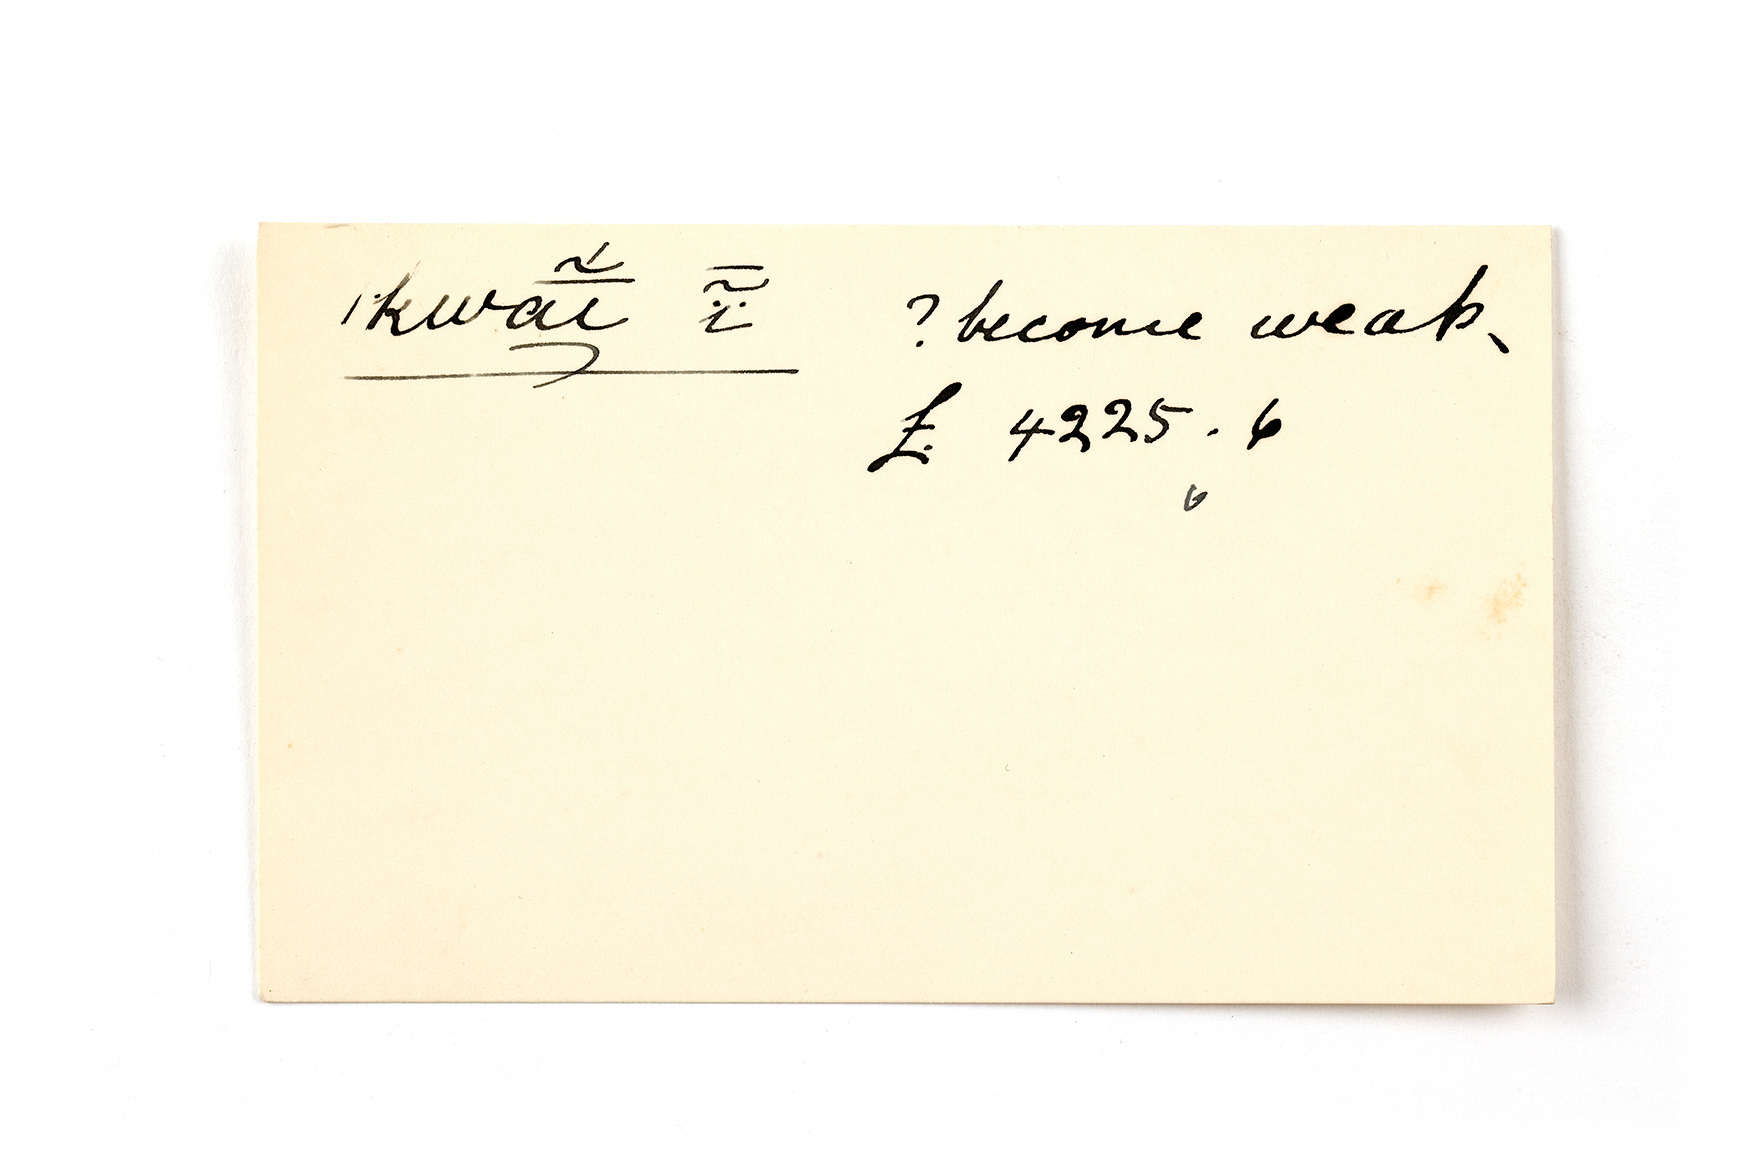 ǀkwãĩ ĩ̄ ? become weak,
Ł. 4225. 6
6